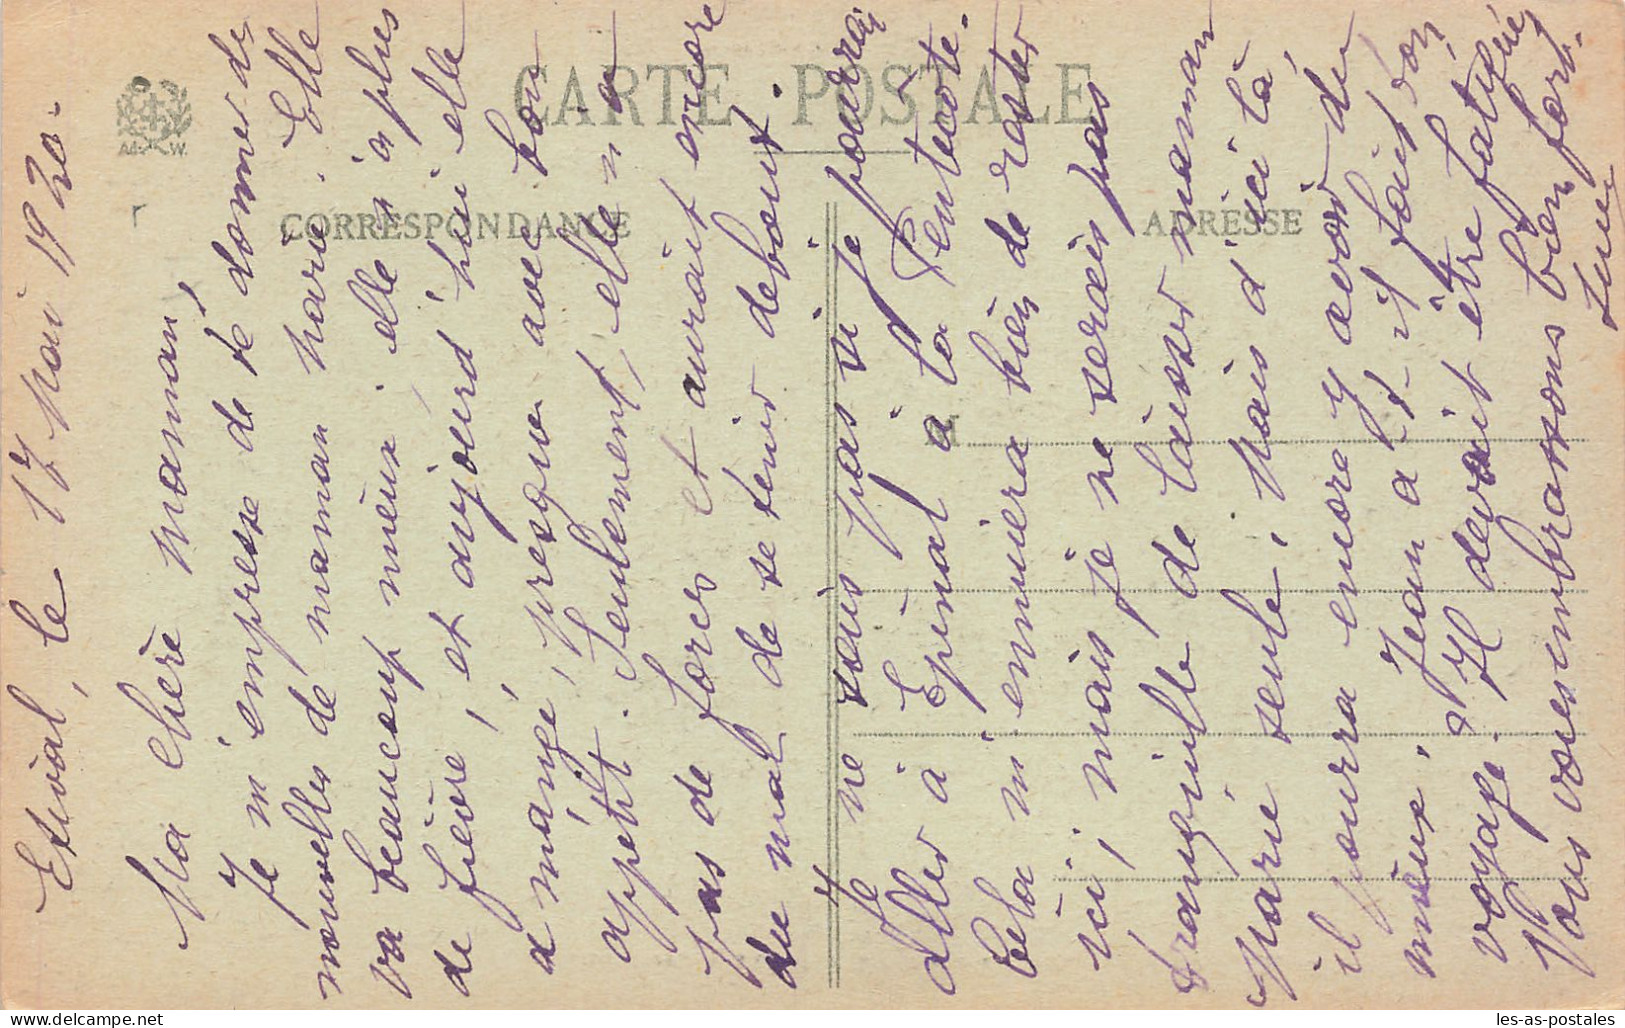 Etival, le 17 Mai 1920.
Ma chère Maman,
Je m'empresse de te donner des
nouvelles de maman Marie. Elle
va beaucoup mieux, elle n'a plus
de fièvre, et aujourd'hui elle
a mangé, presque avec bon
appétit. Seulement, elle n'a
pas de forces et aurait encore
du mal de se tenir debout.
Je ne sais pas si je pourrai
aller à Epinal à la Pentecôte.
Cela m'ennuiera bien de rester
ici, mais je ne serais pas
tranquille de laisser maman
Marie seule, mais d'ici là,
il pourra encore y avoir du
mieux. Jean a t-il fait bon
voyage. Il devait être fatigué
Nous vous embrassons bien fort.
CARTE POSTALE
CORRESPONDANCE
ADRESSE
M
les-as-postales